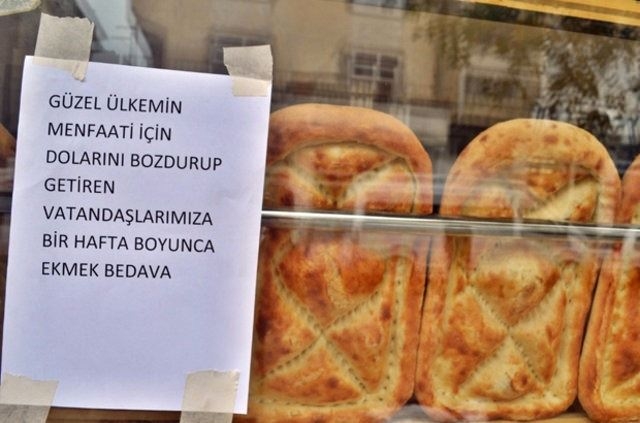 GÜZEL ÜLKEMİN
MENFAATİ İÇİN
DOLARINI BOZDURUP
GETİREN
VATANDAŞLARIMIZA
BİR HAFTA BOYUNCA
EKMEK BEDAVA